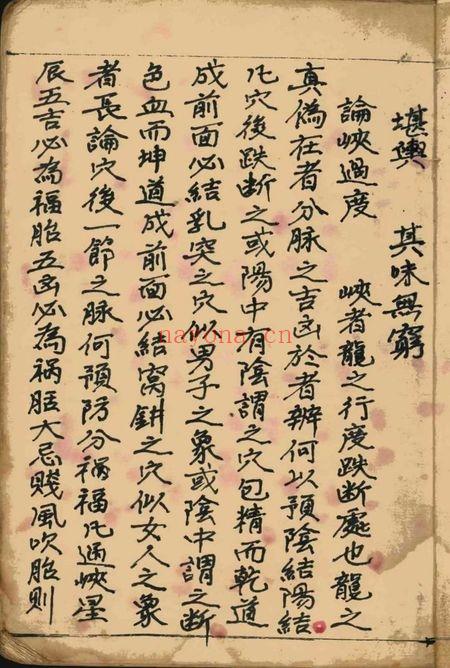 堪輿 其味無窮
論峽過度 峽者龍之行度跌斷處也龍之
真偽在者分脉之吉凶於者辨何以預陰結陽結
凡穴後跌断之或陽中有陰謂之穴包精而乾道
成前面必結乳突之穴似男子之象或陰中謂之断
色血而坤道成前面必結窩鉗之穴似女人之象
者長論穴後一節之脉何預防分禍福凡過峽星
辰五吉必為福胎五凶必為禍胎大忌賤風吹胎則
nayona.cn